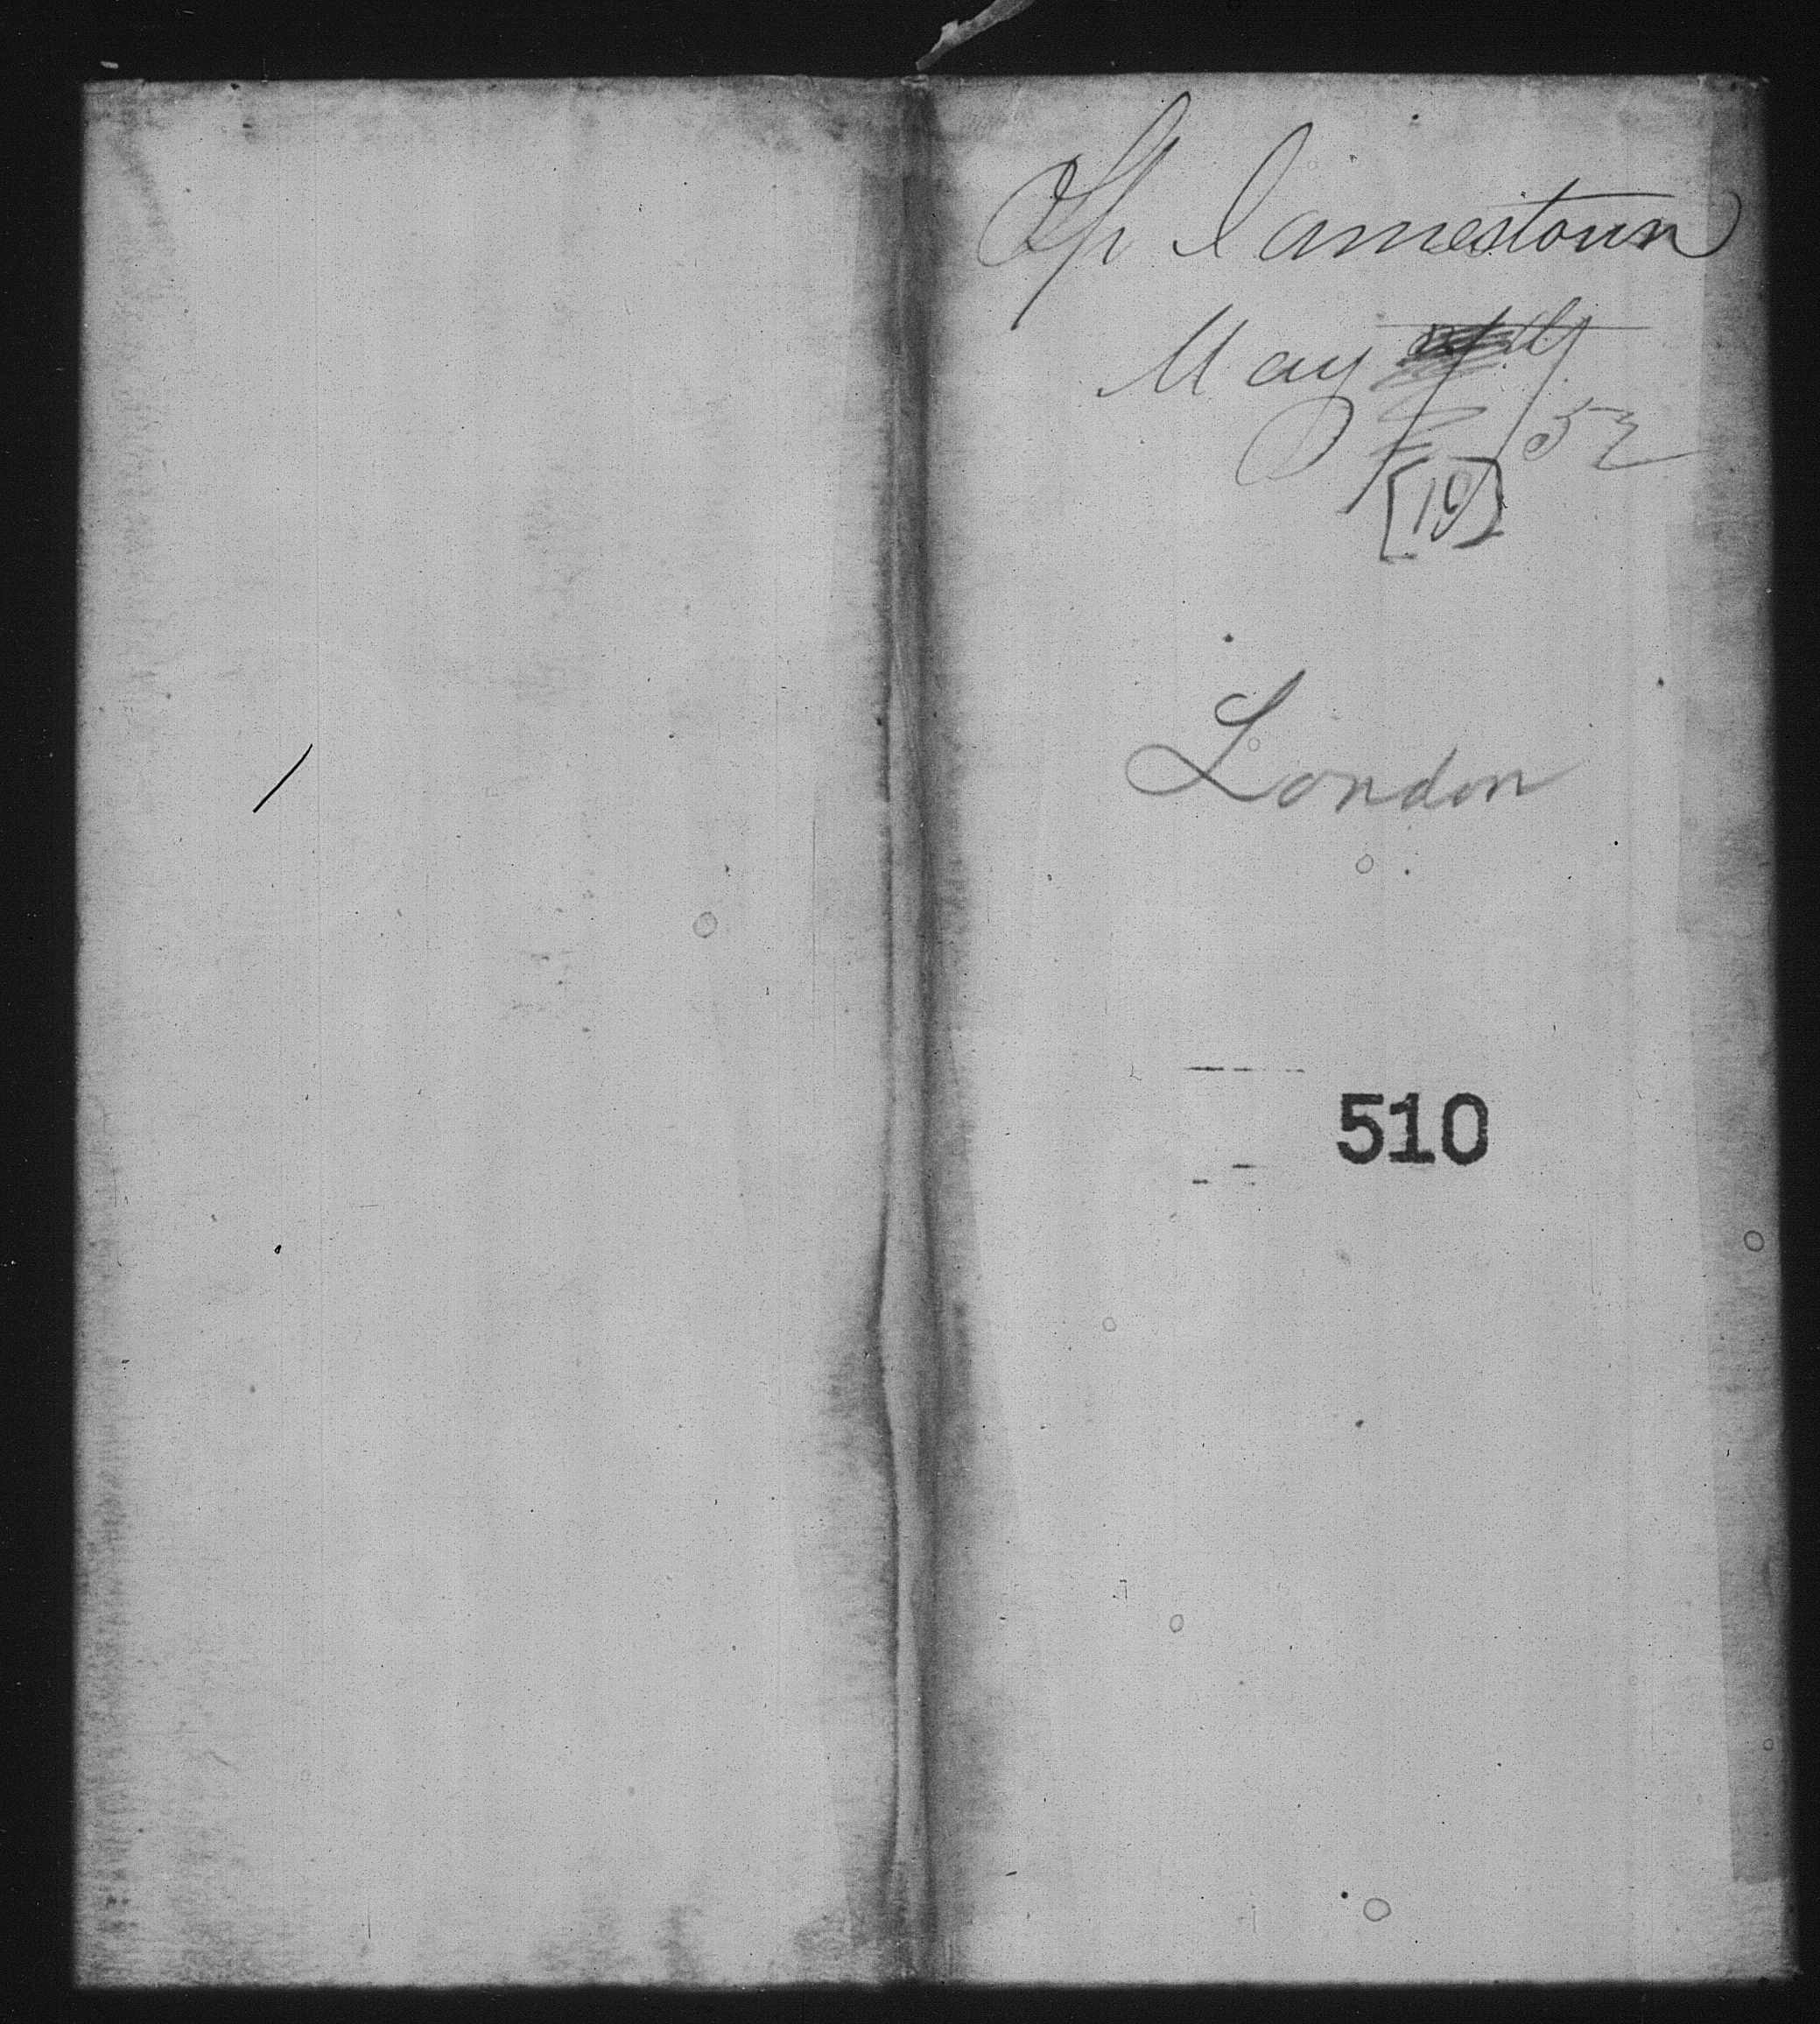 Sh Jamestown
May
53
[19]
London
510